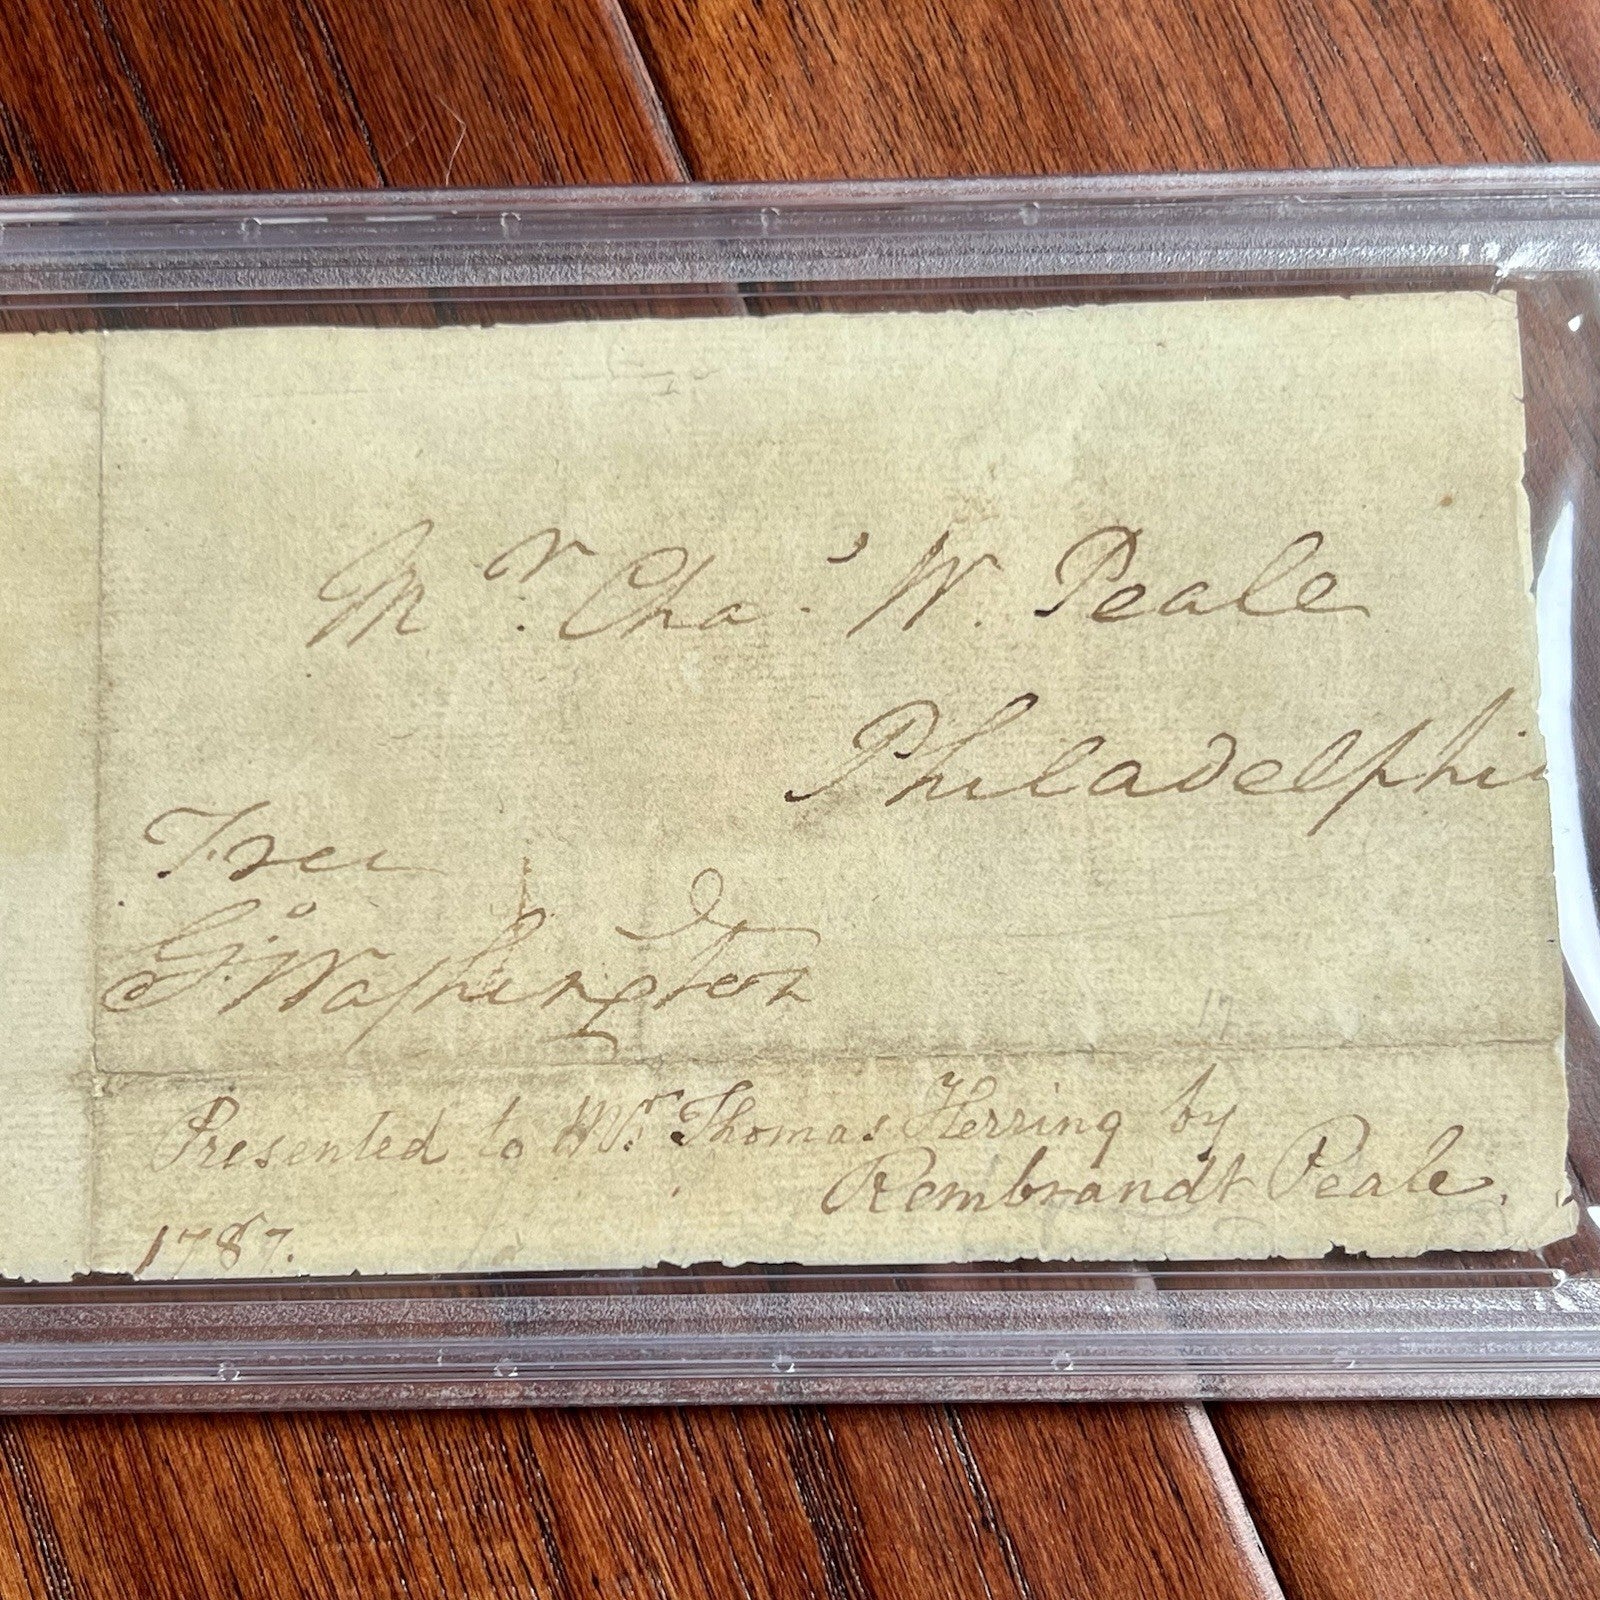 Mr. Chas. W. Peale
Philadelphi
Free
Go. Washington
Presented to Mr. Thomas Herring by
Rembrandt Peale.
1787.